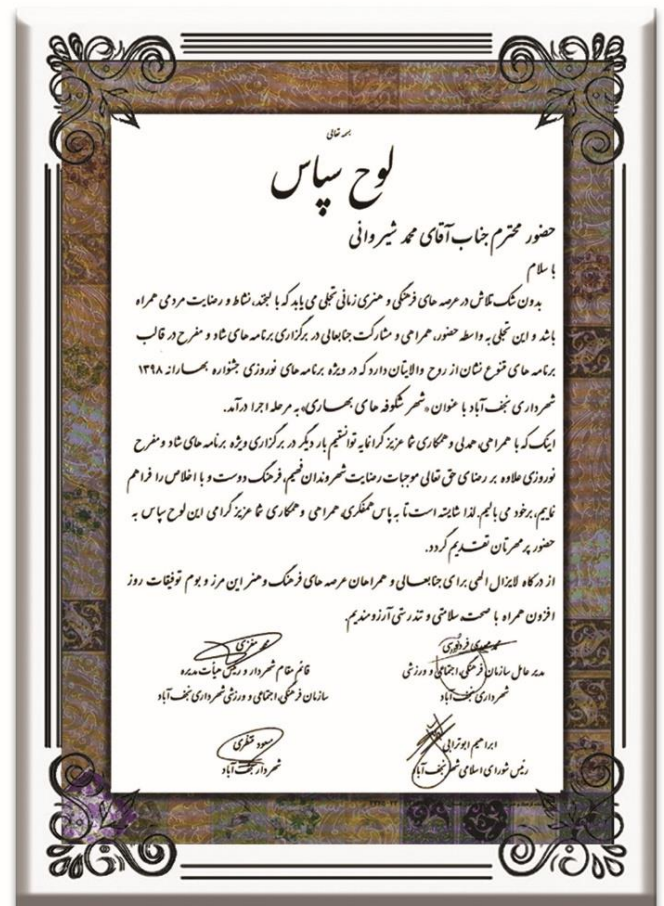 بسمه تعالی
لوح سپاس
حضور محترم جناب آقای محمد شیروانی
با سلام
بدون شک تلاش در عرصه های فرهنگی و هنری زمانی تجلی می یابد که با لبخند، نشاط و رضایت مردمی همراه
باشد و این تجلی به واسطه حضور، همراهی و مشارکت جنابعالی در برگزاری برنامه های شاد و مفرح در قالب
برنامه های متنوع نشان از روح والایتان دارد که در ویژه برنامه های نوروزی جشنواره بهارانه ۱۳۹۸
شهرداری نجف آباد با عنوان «شهر شکوفه های بهاری» به مرحله اجرا درآمد.
اینک که با همراهی، همدلی و همکاری شما عزیز گرانمایه توانستیم بار دیگر در برگزاری ویژه برنامه های شاد و مفرح
نوروزی علاوه بر رضای حق تعالی موجبات رضایت شهروندان فهیم، فرهنگ دوست و با اخلاص را فراهم
نماییم، برخود می بالیم. لذا شایسته است تا به پاس همفکری، همراهی و همکاری شما عزیز گرامی این لوح سپاس به
حضور پر مهرتان تقدیم گردد.
از درگاه لایزال الهی برای جنابعالی و همراهان عرصه های فرهنگ و هنر این مرز و بوم توفیقات روز
افزون همراه با صحت، سلامتی و تندرستی آرزومندیم.
محمد مهدی
مدیر عامل سازمان فرهنگی، اجتماعی و ورزشی
شهرداری نجف آباد
قائم مقام شهردار و رییس هیأت مدیره
سازمان فرهنگی، اجتماعی و ورزشی شهرداری نجف آباد
ابراهیم ابوترابی
رئیس شورای اسلامی شهر نجف آباد
مسعود منتظری
شهردار نجف آباد